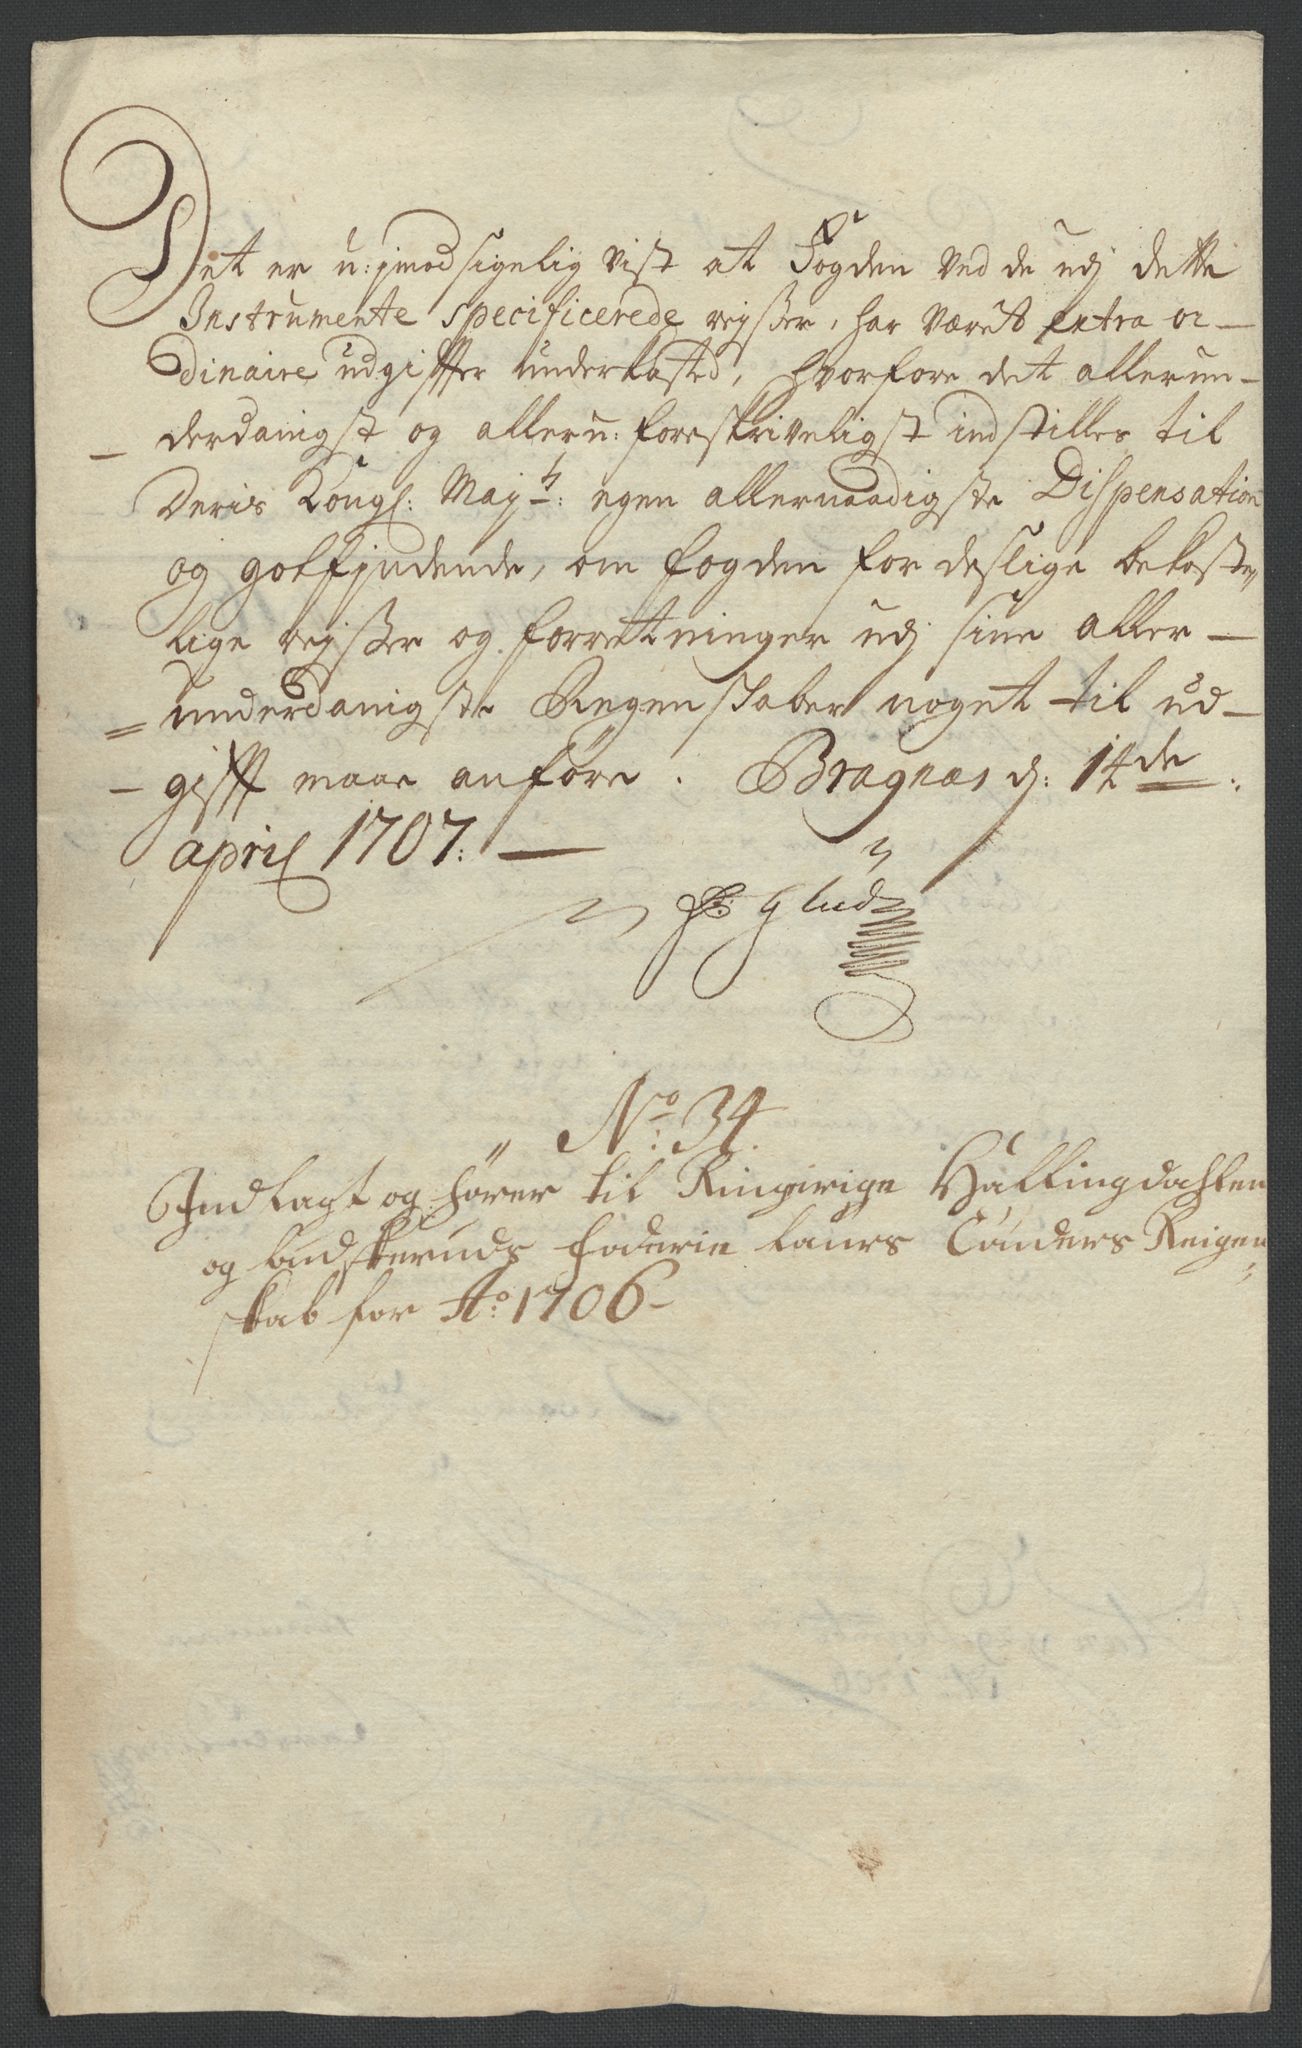 Det er u:jmodsigelig vist at Fogden ved de udj dette
Instrumente specificerede rejsser, har været extra or-
dinaire udgiffter underkasted, hvorfore det allerun-
derdanigst og alleru: foreskriveligst indstilles til
Deris Kongl: Mayts: egen allernaadigste Dispensation
og gotfindende, om fogden for deslige bekoste-
lige rejsser og forretninger udj sine aller-
underdanigste Regenskaber noget til ud-
gifft maae anföre. Bragnæs d: 14de:
april 1707:
Glud
No: 34.
Indlagt og hörer til Ringerige Hallingdahlen
og budskeruds foderie Laurs Tönders Reigen
skab for Ao: 1706